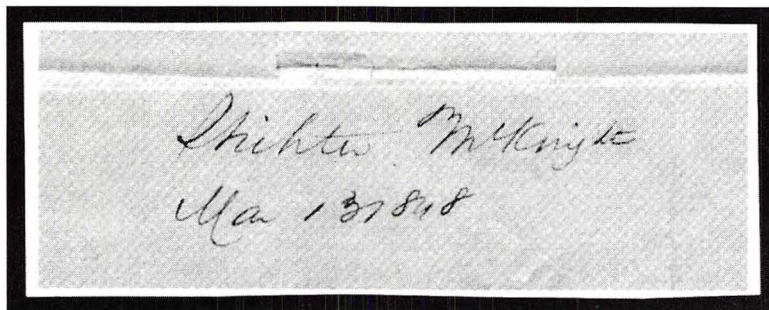 Stichter McKnight
Mar 13 1848